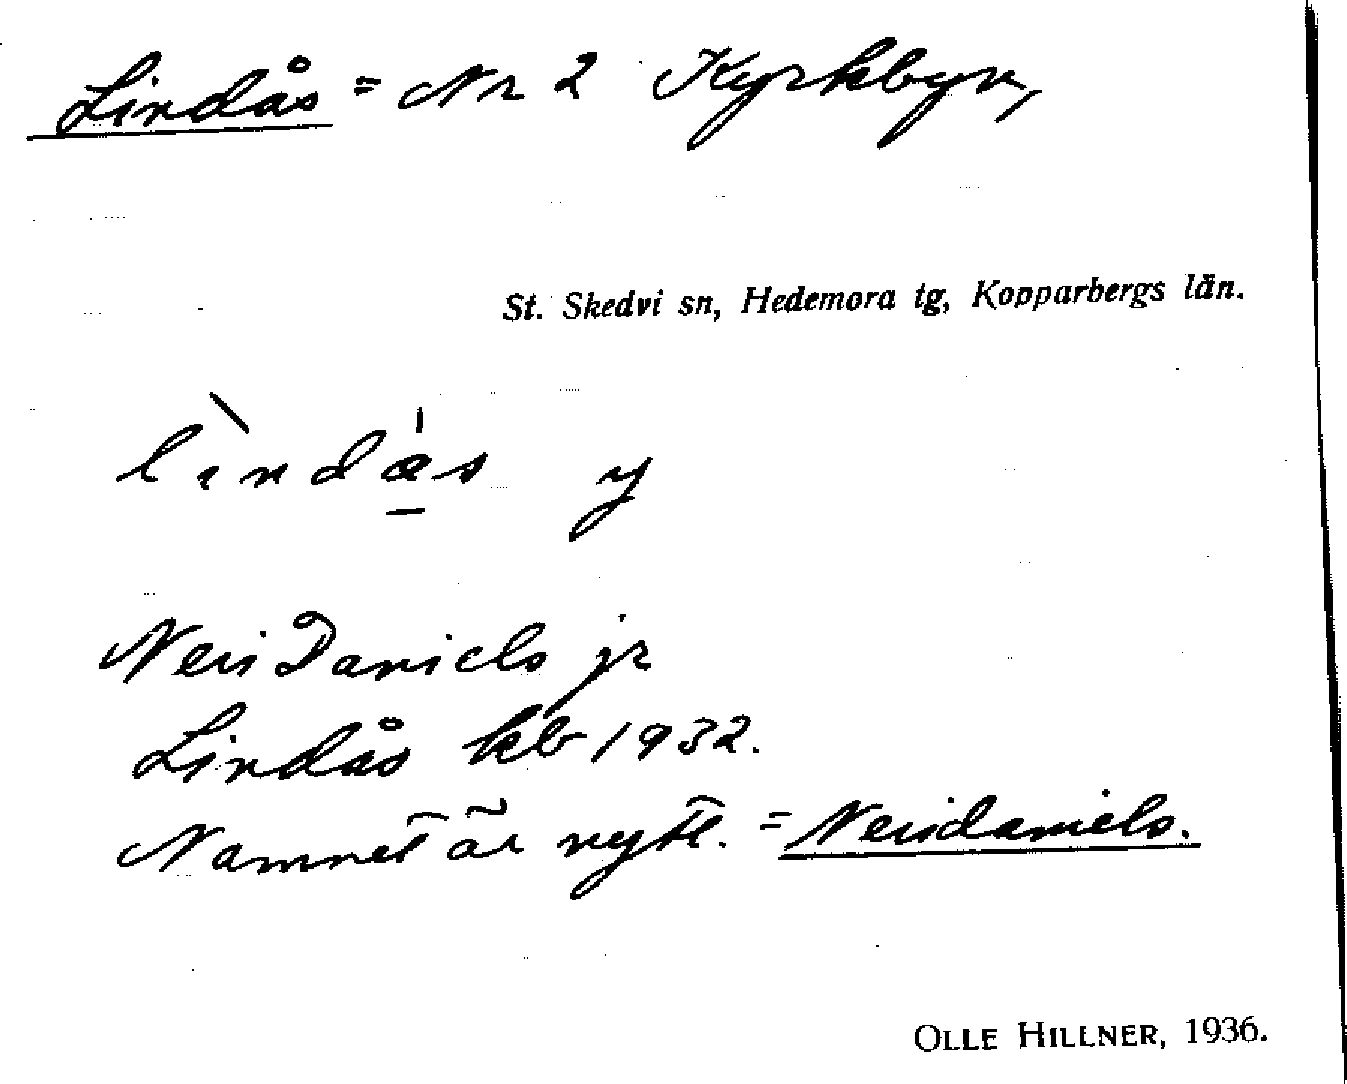 Lindås = Nr 2 Kyrkbyn,
St. Skedvi sn, Hedemora tg, Kopparbergs län.
lìndás y
Neri Daniels jr
Lindås kb 1932.
Namnet är nytt. = Neridaniels.
OLLE HILLNER, 1936.